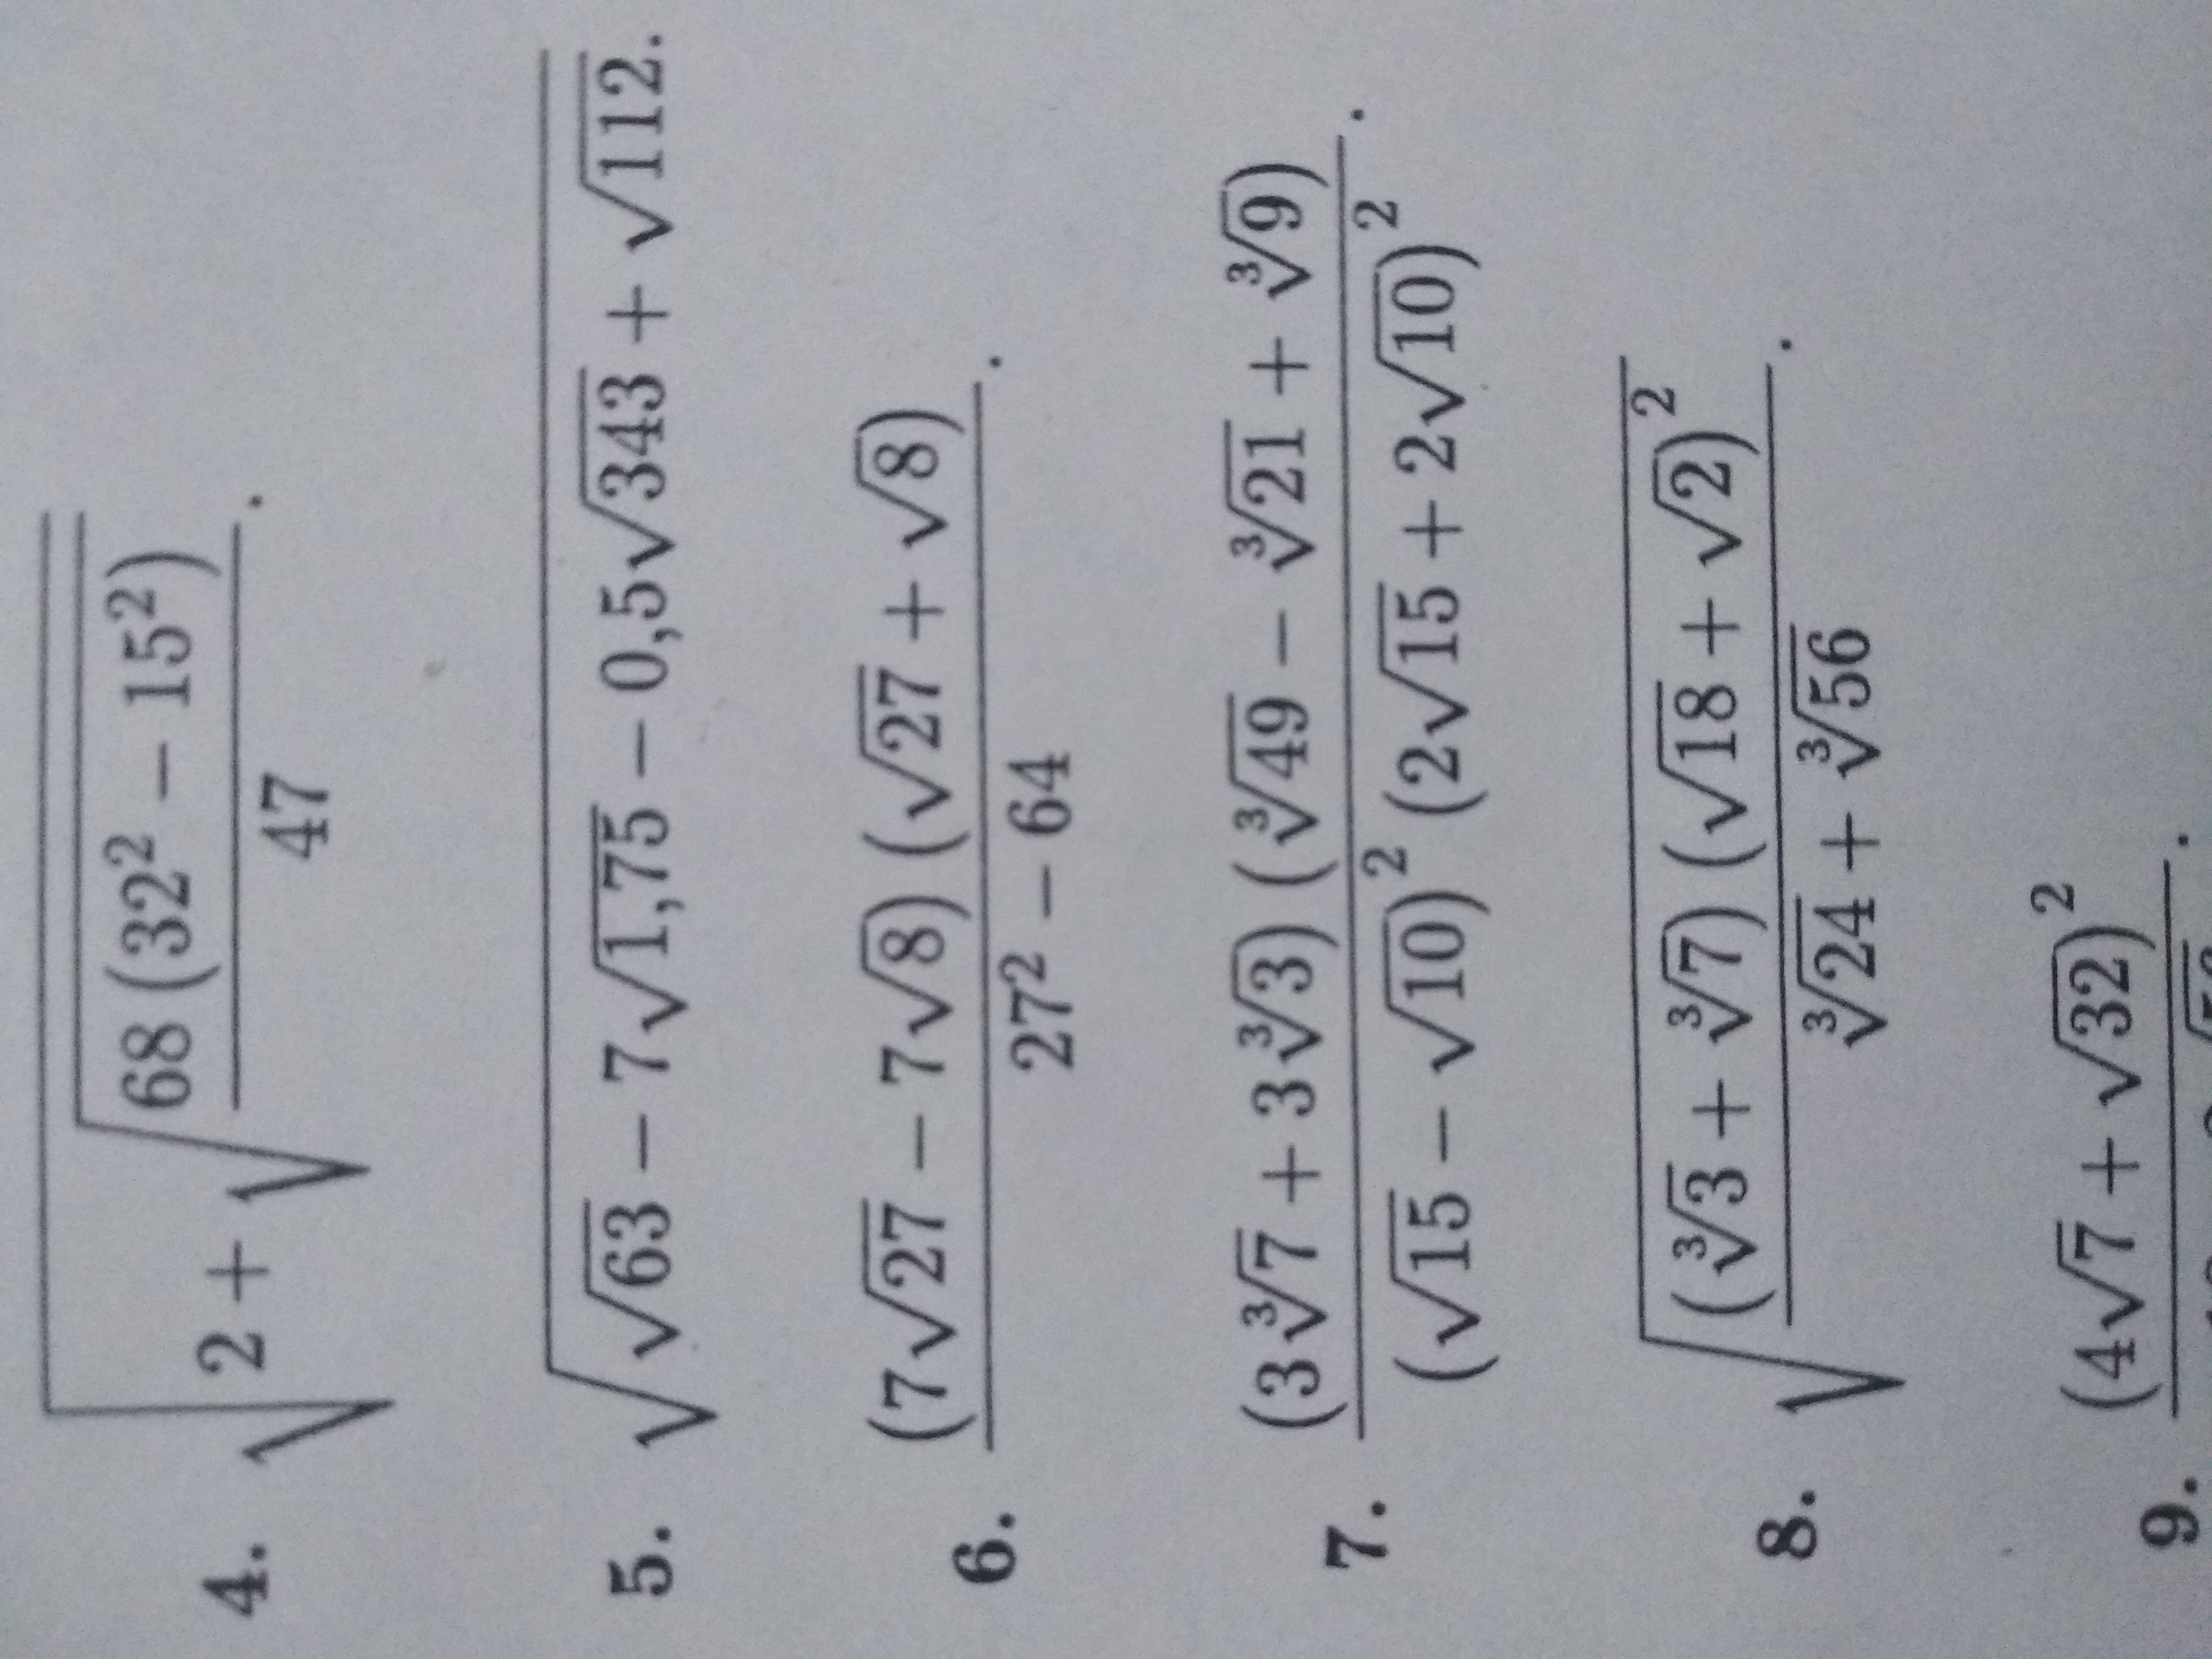 4. √(2 + √(68 (32² − 15²) / 47)).
5. √(√63 − 7√1,75 − 0,5√343 + √112.
6. (7√27 − 7√8) (√27 + √8) / (27² − 64).
7. (3∛7 + 3∛3) (∛49 − ∛21 + ∛9) / ((√15 − √10)² (2√15 + 2√10)²).
8. √((∛3 + ∛7) (√18 + √2)² / (∛24 + ∛56)).
9. (4√7 + √32)² / .